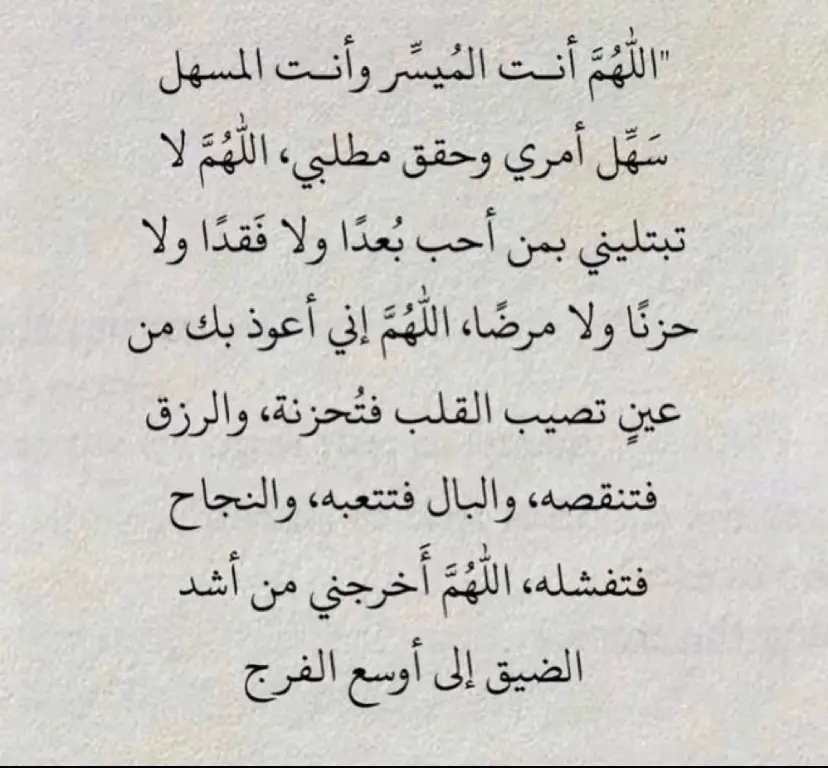 "اللَّهُمَّ أنــت المُيسِّر وأنــت المسهل
سَهِّل أمري وحقق مطلبي، اللَّهُمَّ لا
تبتليني بمن أحب بُعدًا ولا فَقدًا ولا
حزنًا ولا مرضًا، اللَّهُمَّ إني أعوذ بك من
عينٍ تصيب القلب فتُحزنة، والرزق
فتنقصه، والبال فتتعبه، والنجاح
فتفشله، اللَّهُمَّ أَخرجني من أشد
الضيق إلى أوسع الفرج